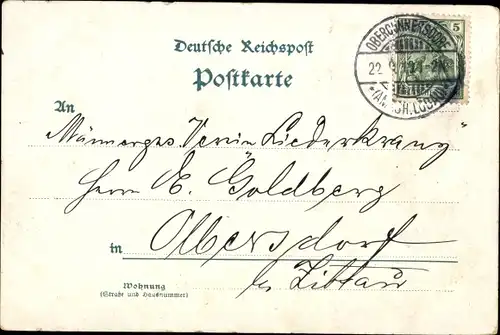 Deutsche Reichspost
Postkarte
OBERCUNNERSDORF
22
5
An
Männerges. Verein "Liederkranz"
Herrn E. Goldberg
in Olbersdorf
b/ Zittau
Wohnung
(Straße und Hausnummer)